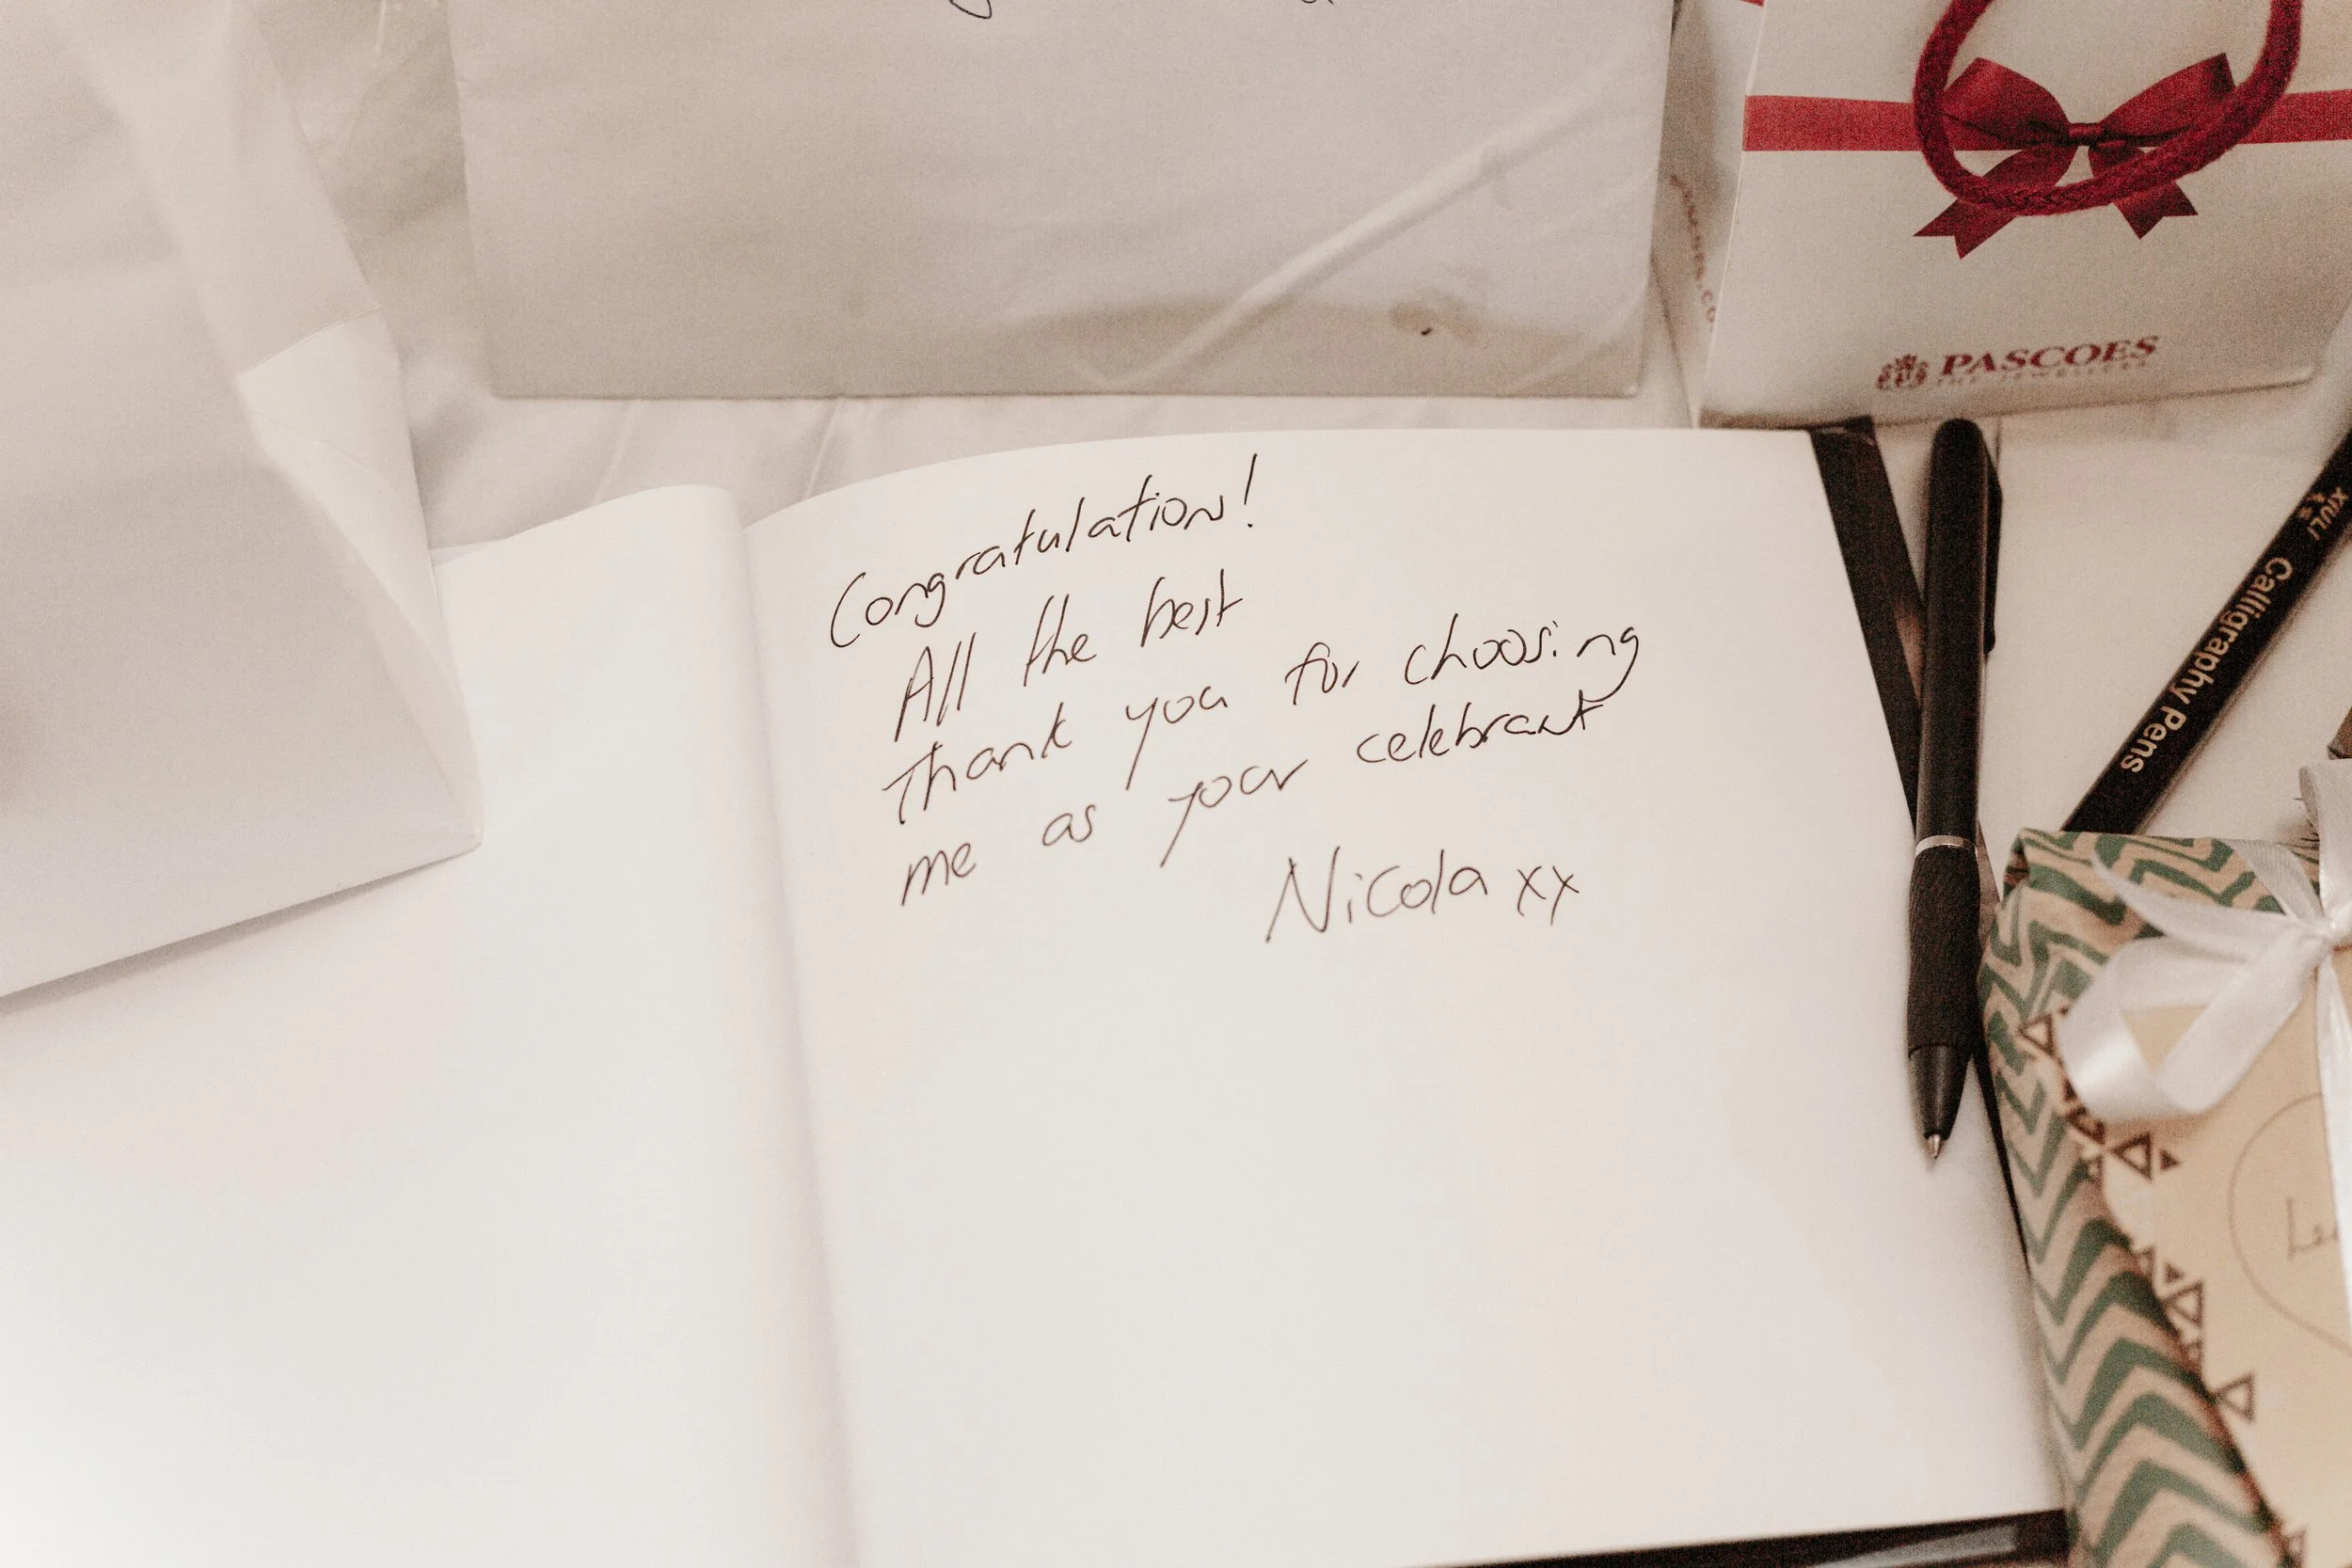 PASCOES
THE JEWELLERS
Congratulation!
All the best
Thank you for choosing
me as your celebrant
Nicola xx
XIULI
Calligraphy Pens